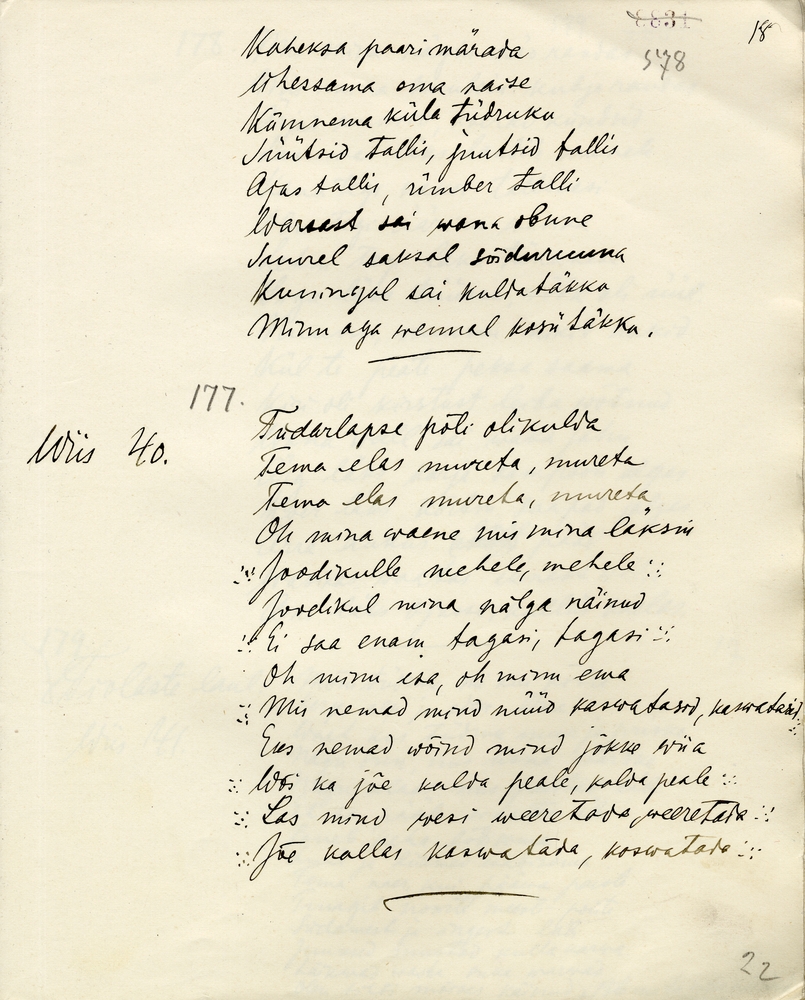 8831
18
578
Kaheksa paari märada
Ühessama oma naise
Kümnema küla tüdruku
Jüütsid tallis, juutsid tallis
Ajas tallis, ümber talli
Warsast sai wana obune
Suurel saksal sõiduruuna
Kuningal sai kuldatäkku
Minu aga wennal kosütäkku.
177.
Tüdarlapse põli oli kulda
Wiis 40.
Tema elas mureta, mureta
Tema elas mureta, mureta
Oh mina waene mis mina läksin
:,: Joodikulle mehele, mehele :,:
Joodikul mina nälga näinud
:,: Ei saa enam tagasi, tagasi :,:
Oh minu isa, oh minu ema
:,: Mis nemad mind nüüd kaswatasid, kaswatasid :,:
Eks nemad wõind mind jõkke wiia
:,: Wõi ka jõe kalda peale, kalda peale :,:
:,: Las mind wesi weeretada, weeretada :,:
:,: Jõe kallas kaswatada, koswatada :,:
22